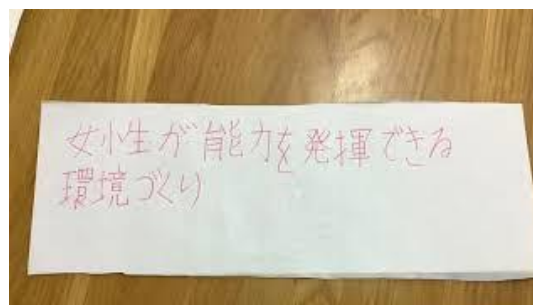 女性が能力を発揮できる
環境づくり